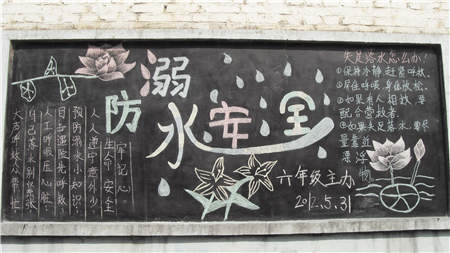 防溺水安全
生命安全
牢记心。
人人遵守意外少
预防溺水小知识,
遇险先呼救,
人工呼救压心脏,
自己落水别惊张
大声呼救众帮忙
失足落水怎么办!
①保持冷静赶紧呼救。
②屏住呼吸身体放松。
③如果有人相救要
配合营救者。
④如果失足落水,要尽
量靠近
漂浮物
六年级主办
2012.5.31